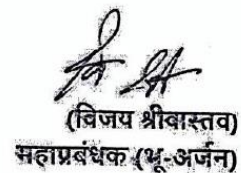 (विजय श्रीवास्तव)
महाप्रबंधक (भू-अर्जन)